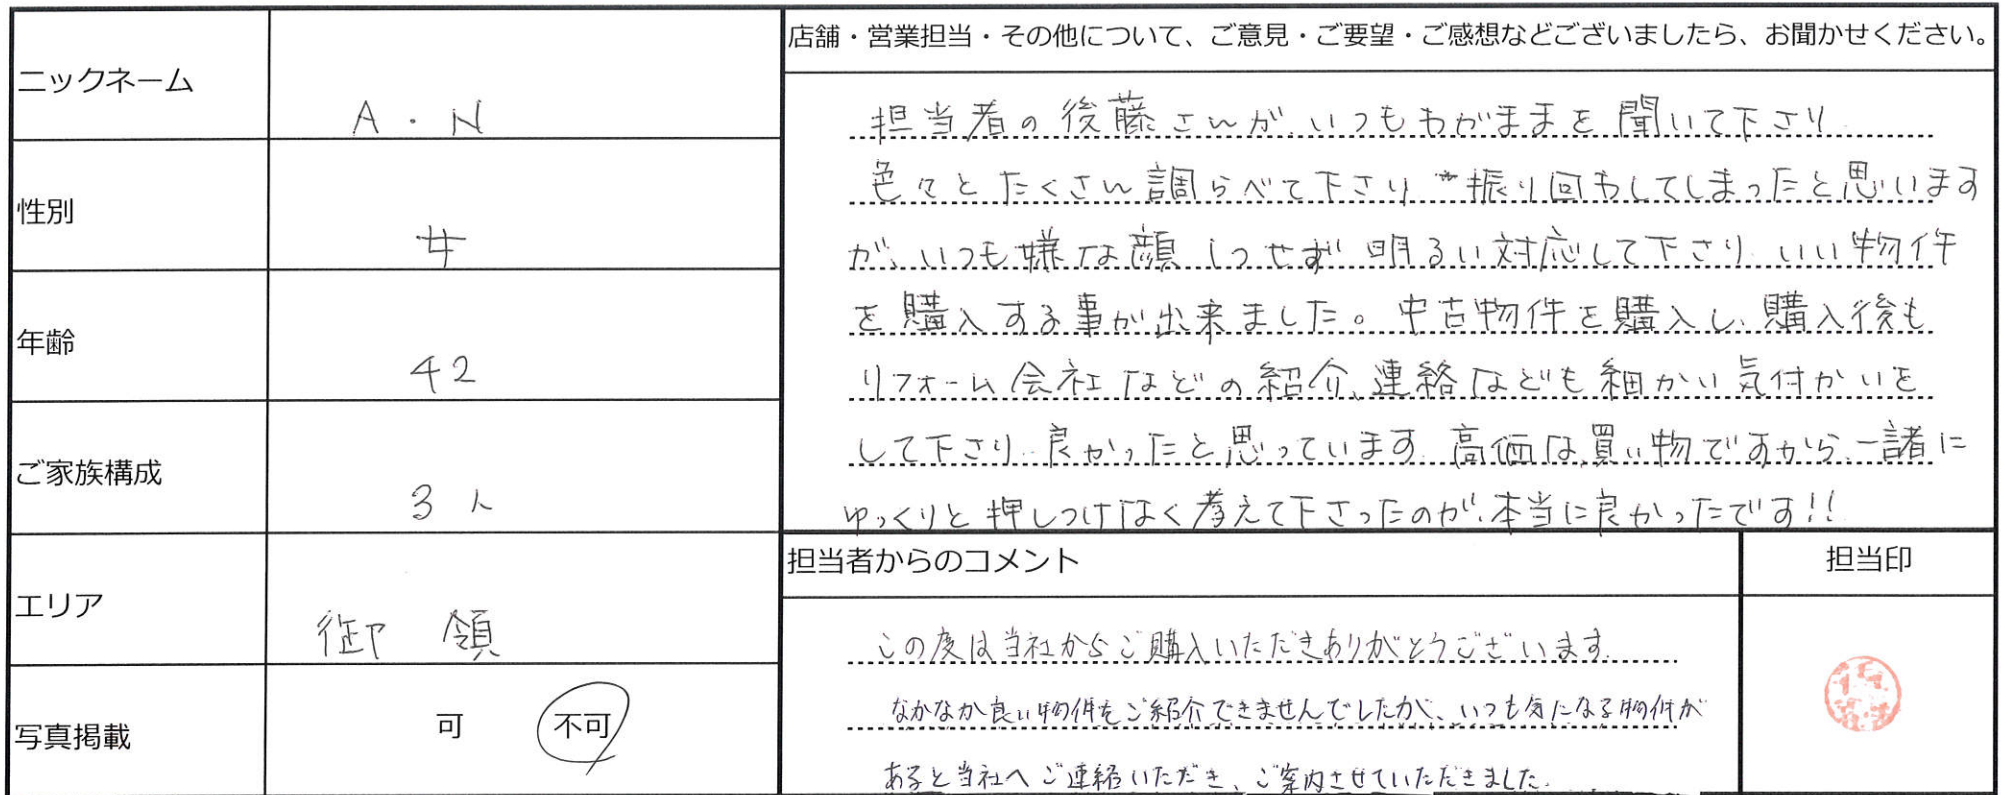 ニックネーム
A・N
性別
女
年齢
42
ご家族構成
3人
エリア
御領
写真掲載
可 不可
店舗・営業担当・その他について、ご意見・ご要望・ご感想などございましたら、お聞かせください。
担当者の後藤さんが、いつもわがままを聞いて下さり
色々とたくさん調らべて下さり 振り回わしてしまったと思います
が、いつも嫌な顔1つせず 明るい対応して下さり いい物件
を購入する事が出来ました。中古物件を購入し、購入後も
リフォーム会社などの紹介、連絡なども細かい気付かいを
して下さり 良かったと思っています 高価な買い物ですから、一諸に
ゆっくりと押しつけなく考えて下さったのが、本当に良かったです!!
担当者からのコメント
この度は当社からご購入いただきありがとうございます.
なかなか良い物件をご紹介できませんでしたが、いつも気になる物件が
あると当社へご連絡いただき、ご案内させていただきました.
担当印